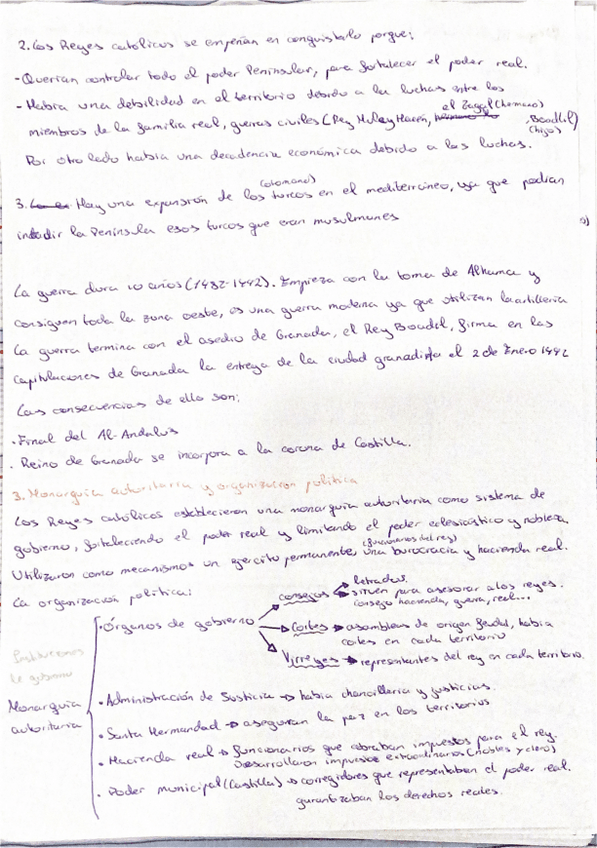 2. Los Reyes católicos se empeñan en conquistarlo porque:
- Querían controlar todo el poder Peninsular, para fortalecer el poder real.
- Había una debilidad en el territorio debido a la luchas entre los
miembros de la familia real, guerras civiles (Rey Muley Hacen, el Zagal (hermano), Boadil (hijo))
Por otro lado había una decadencia económica debido a las luchas.
3. Hay una expansión de los turcos (otomano) en el mediterráneo, ya que podían
invadir la Península esos turcos que eran musulmanes
La guerra dura 10 años (1482-1492). Empieza con la toma de Alhama y
consiguen toda la zona oeste, es una guerra moderna ya que utilizan la artillería
La guerra termina con el asedio de Granada, el Rey Boadil, firma en las
Capitulaciones de Granada la entrega de la ciudad granadina el 2 de Enero 1492
Las consecuencias de ello son:
· Final del Al-Andalus
· Reino de Granada se incorpora a la corona de Castilla.
3. Monarquía autoritaria y organización política
Los Reyes católicos establecieron una monarquía autoritaria como sistema de
gobierno, fortaleciendo el poder real y limitando el poder eclesiástico y nobleza.
Utilizaron como mecanismos un ejército permanente, una burocracia (funcionarios del rey) y hacienda real.
La organización política:
Instituciones de gobierno
Monarquía autoritaria
· Órganos de gobierno
consejos → letrados.
→ sirven para asesorar a los reyes.
consejo hacienda, guerra, real...
Cortes → asambleas de origen feudal, había
cortes en cada territorio
Virreyes → representantes del rey en cada territorio.
· Administración de Justicia → había chancillería y justicias.
· Santa Hermandad → aseguran la paz en los territorios
· Hacienda real → funcionarios que cobraban impuestos para el rey.
Desarrollaron impuestos extraordinarios (nobles y clero)
· Poder municipal (Castilla) → corregidores que representaban el poder real.
garantizaban los derechos reales.